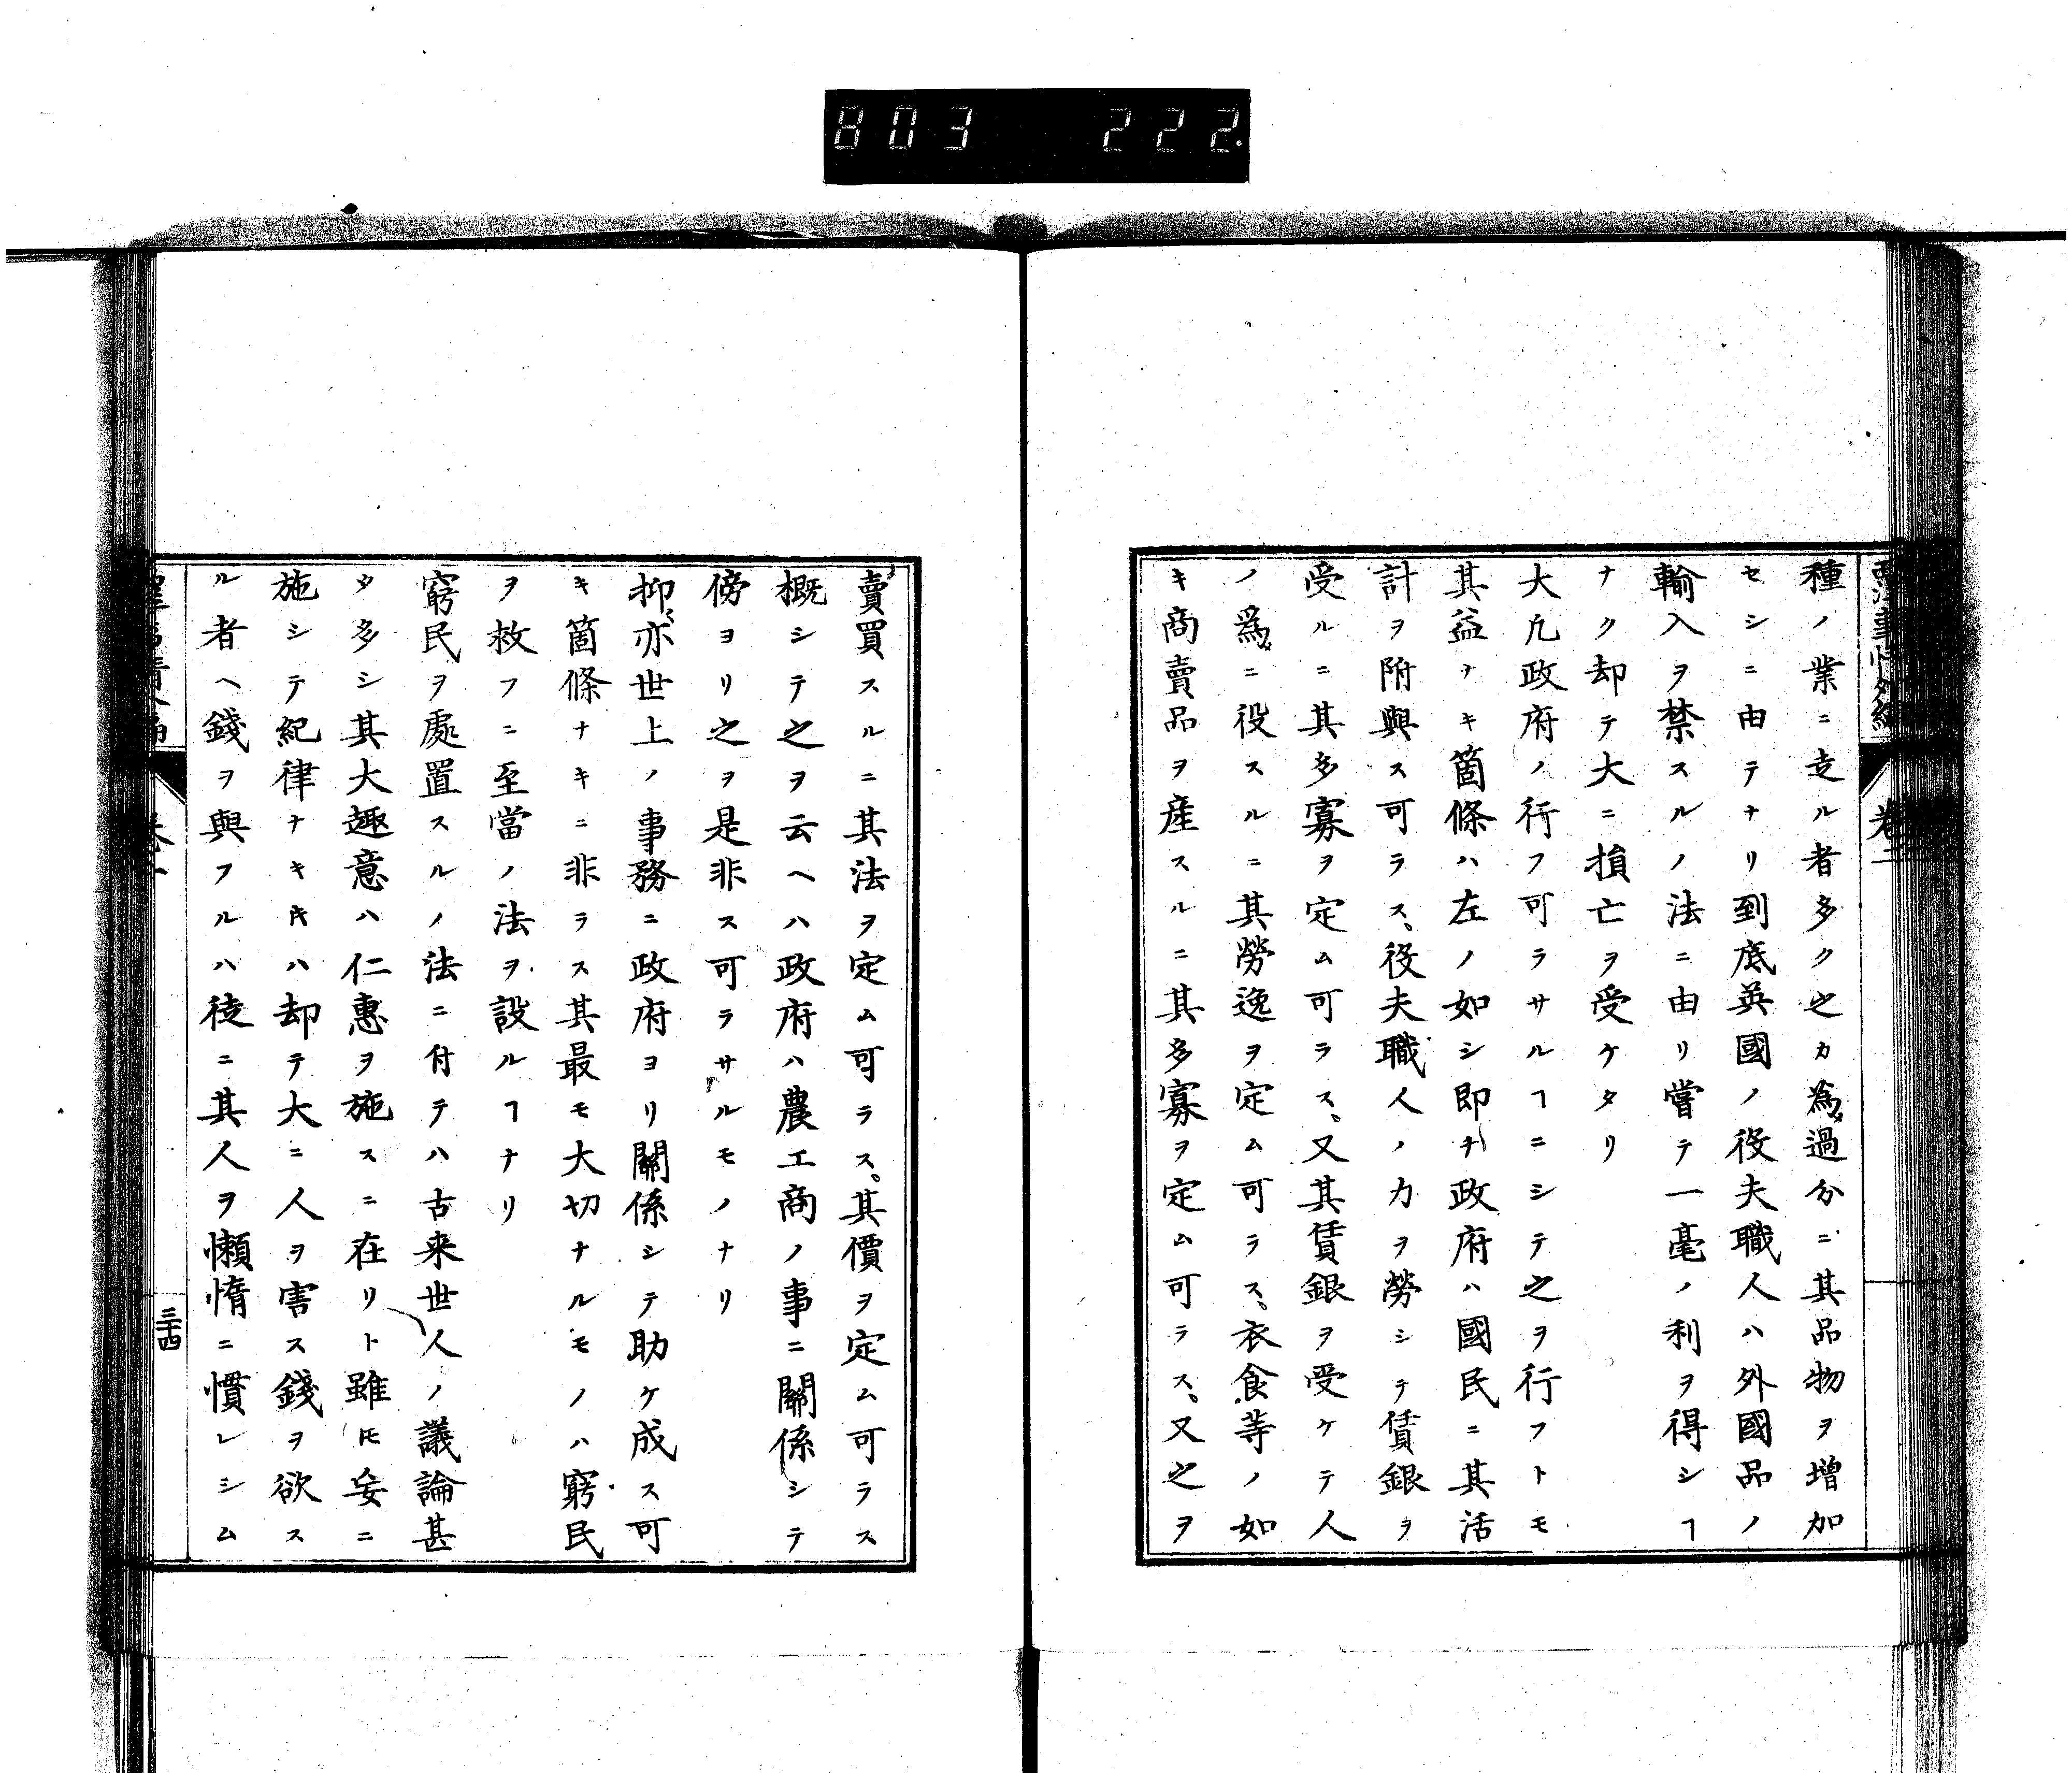 803 222.
卷二
種ノ業ニ走ル者多ク之カ為メ過分ニ其品物ヲ増加
セシニ由テナリ到底英國ノ役夫職人ハ外國品ノ
輸入ヲ禁スルノ法ニ由リ嘗テ一毫ノ利ヲ得シヿ
ナク却テ大ニ損亡ヲ受ケタリ
大凢政府ノ行フ可ラサルヿニシテ之ヲ行フトモ
其益ナキ箇條ハ左ノ如シ即チ政府ハ國民ニ其活
計ヲ附與ス可ラス、役夫職人ノ力ヲ勞シテ賃銀ヲ
受ルニ其多寡ヲ定ム可ラス、又其賃銀ヲ受ケテ人
ノ爲メニ役スルニ其勞逸ヲ定ム可ラス、衣食等ノ如
キ商賣品ヲ産スルニ其多寡ヲ定ム可ラス、又之ヲ
賣買スルニ其法ヲ定ム可ラス、其價ヲ定ム可ラス
概シテ之ヲ云ヘハ政府ハ農工商ノ事ニ關係シテ
傍ヨリ之ヲ是非ス可ラサルモノナリ
抑〻亦世上ノ事務ニ政府ヨリ關係シテ助ケ成ス可
キ箇條ナキニ非ラス其最モ大切ナルモノハ窮民
ヲ救フニ至當ノ法ヲ設ルヿナリ
窮民ヲ處置スルノ法ニ付テハ古来世人ノ議論甚
タ多シ其大趣意ハ仁惠ヲ施スニ在リト雖𪜈妄ニ
施シテ紀律ナキキハ却テ大ニ人ヲ害ス錢ヲ欲ス
ル者ヘ錢ヲ與フルハ徒ニ其人ヲ懶惰ニ慣レシム
三十四